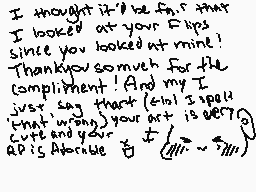 I thought it'd be fair that
I looked at your Flips
since you looked at mine!
Thankyou so much for the
compliment! And my I
just say thart (<lol I spell
'that' wrong) your art is very
cute and your
RP is Adorable I